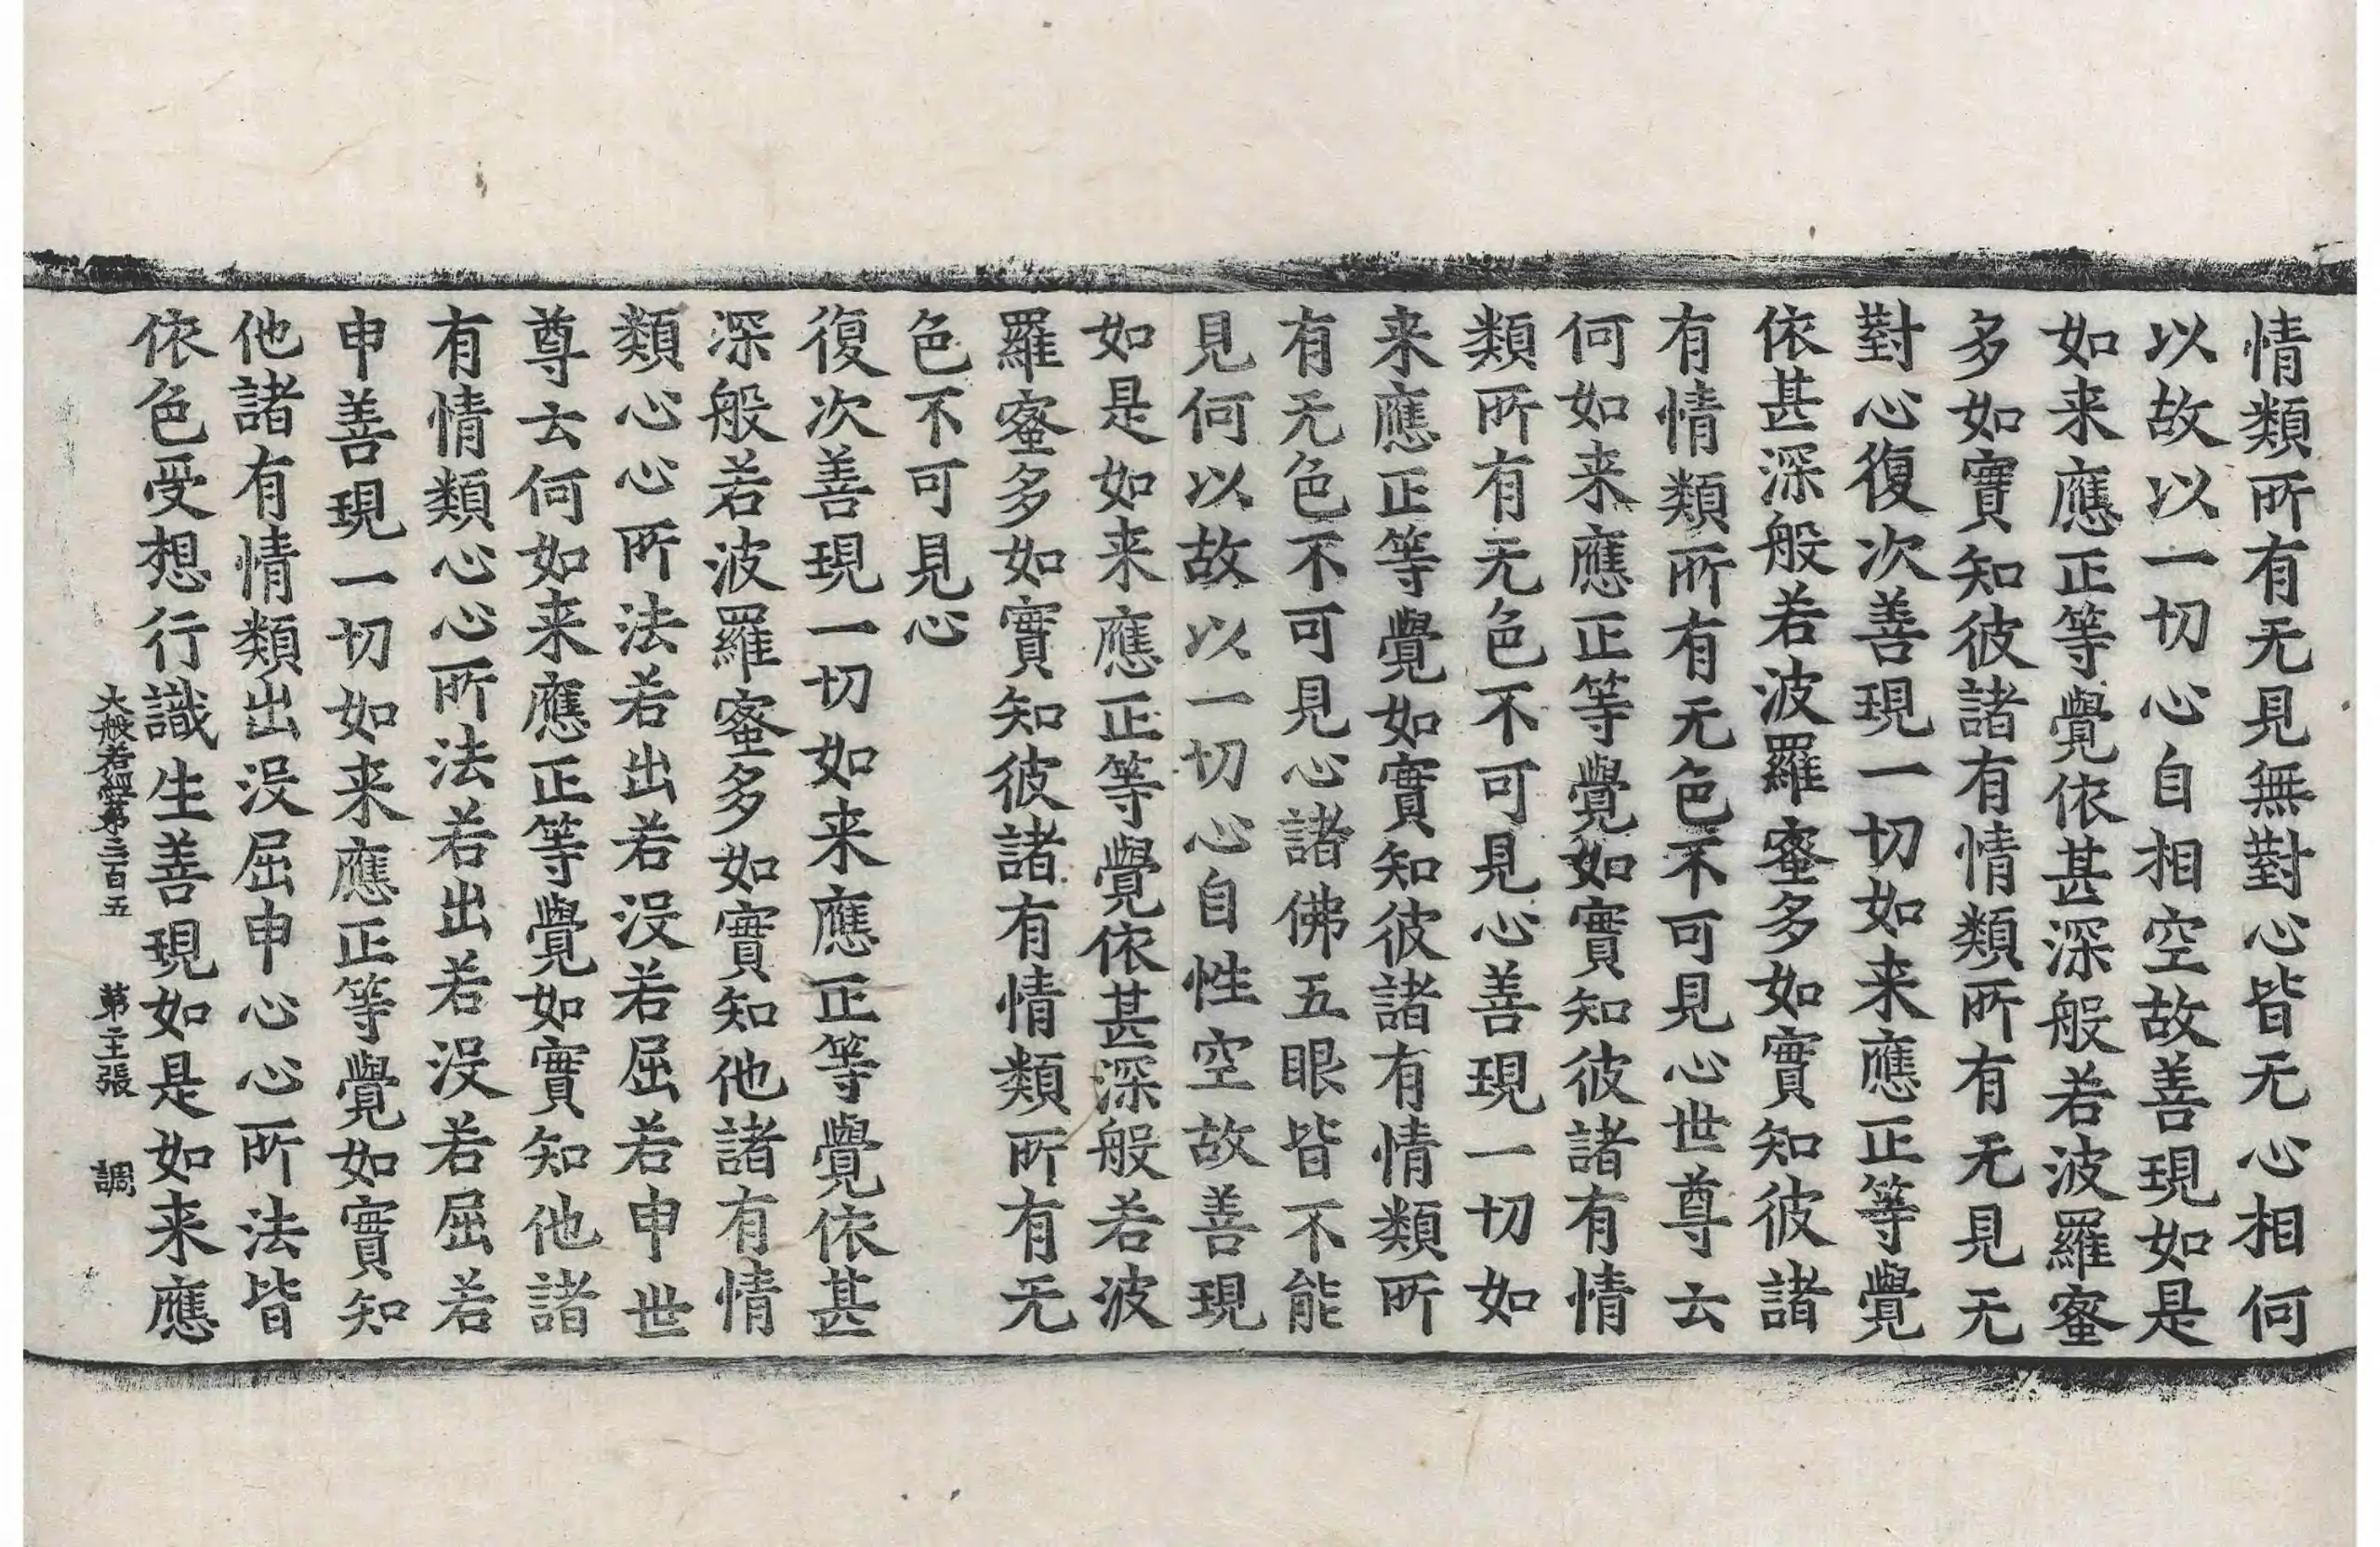 情類所有无見無對心皆无心相何
以故以一切心自相空故善現如是
如来應正等覺依甚深般若波羅蜜
多如實知彼諸有情類所有无見无
對心復次善現一切如来應正等覺
依甚深般若波羅蜜多如實知彼諸
有情類所有无色不可見心世尊云
何如来應正等覺如實知彼諸有情
類所有无色不可見心善現一切如
来應正等覺如實知彼諸有情類所
有无色不可見心諸佛五眼皆不能
見何以故以一切心自性空故善現
如是如来應正等覺依甚深般若波
羅蜜多如實知彼諸有情類所有无
色不可見心
復次善現一切如来應正等覺依甚
深般若波羅蜜多如實知他諸有情
類心心所法若出若没若屈若申世
尊云何如来應正等覺如實知他諸
有情類心心所法若出若没若屈若
申善現一切如来應正等覺如實知
他諸有情類出没屈申心心所法皆
依色受想行識生善現如是如来應
大般若經第三百五 第二張 調